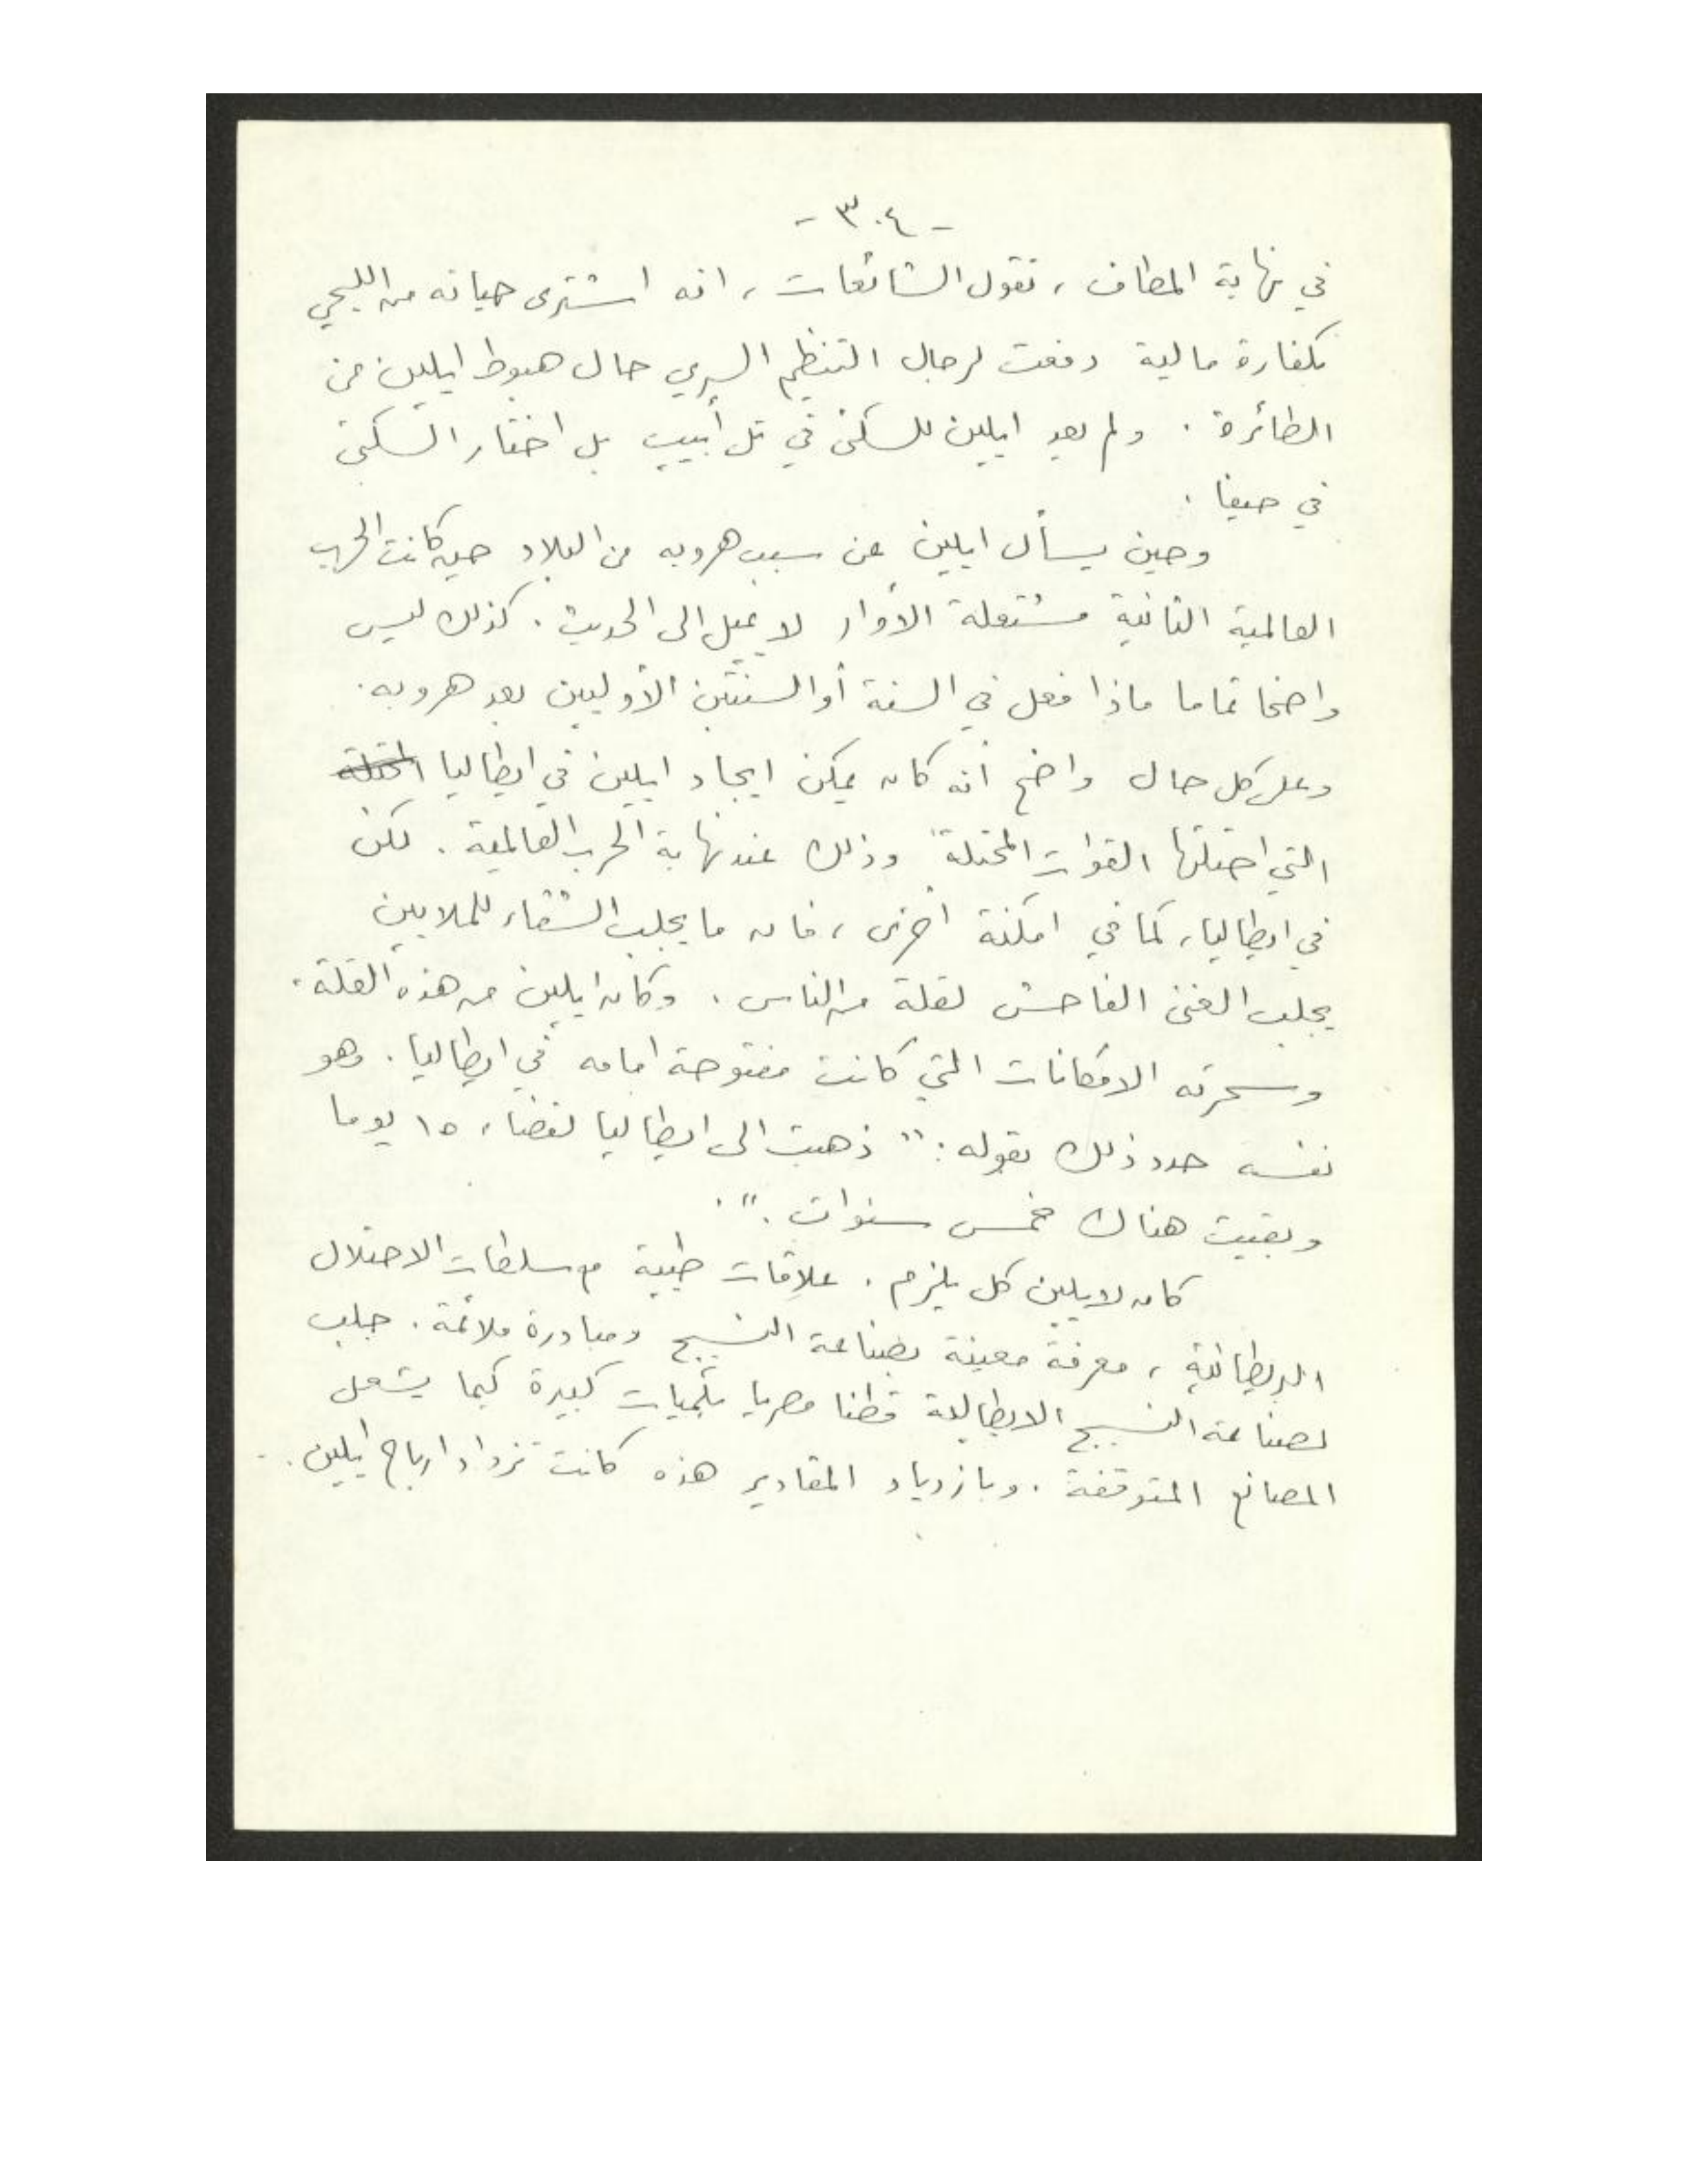 - ٣٠٤ -
في نهاية المطاف ، تقول الشائعات ، انه اشترى حياته من الليحي
بكفارة مالية دفعت لرجال التنظيم السري حال هبوط ايلين من
الطائرة . ولم يعد ايلين للسكن في تل أبيب بل اختار السكن
في حيفا .
وحين يسأل ايلين عن سبب هروبه من البلاد حين كانت الحرب
العالمية الثانية مشتعلة الأوار لا يميل الى الحديث . كذلك ليس
واضحا تماما ماذا فعل في السنة أو السنتين الأوليين بعد هروبه .
وعلى كل حال واضح أنه كان يمكن ايجاد ايلين في ايطاليا المحتلة
التي احتلتها القوات المحتلة وذلك عند نهاية الحرب العالمية . لكن
في ايطاليا ، كما في امكنة أخرى ، فان ما يجلب الشقاء للملايين
يجلب الغنى الفاحش لقلة من الناس . وكان ايلين من هذه القلة .
وسحرته الامكانات التي كانت مفتوحة امامه في ايطاليا . وهو
نفسه حدد ذلك بقوله : " ذهبت الى ايطاليا لقضاء ١٥ يوما
وبقيت هناك خمس سنوات . " .
كان لايلين كل يلزم . علاقات طيبة مع سلطات الاحتلال
البريطانية ، معرفة معينة بصناعة النسيج ومبادرة ملائمة . جلب
لصناعة النسيج الايطالية قطنا مصريا بكميات كبيرة كيما يشغل
المصانع المتوقفة . وبازدياد المقادير هذه كانت تزداد ارباح ايلين . .